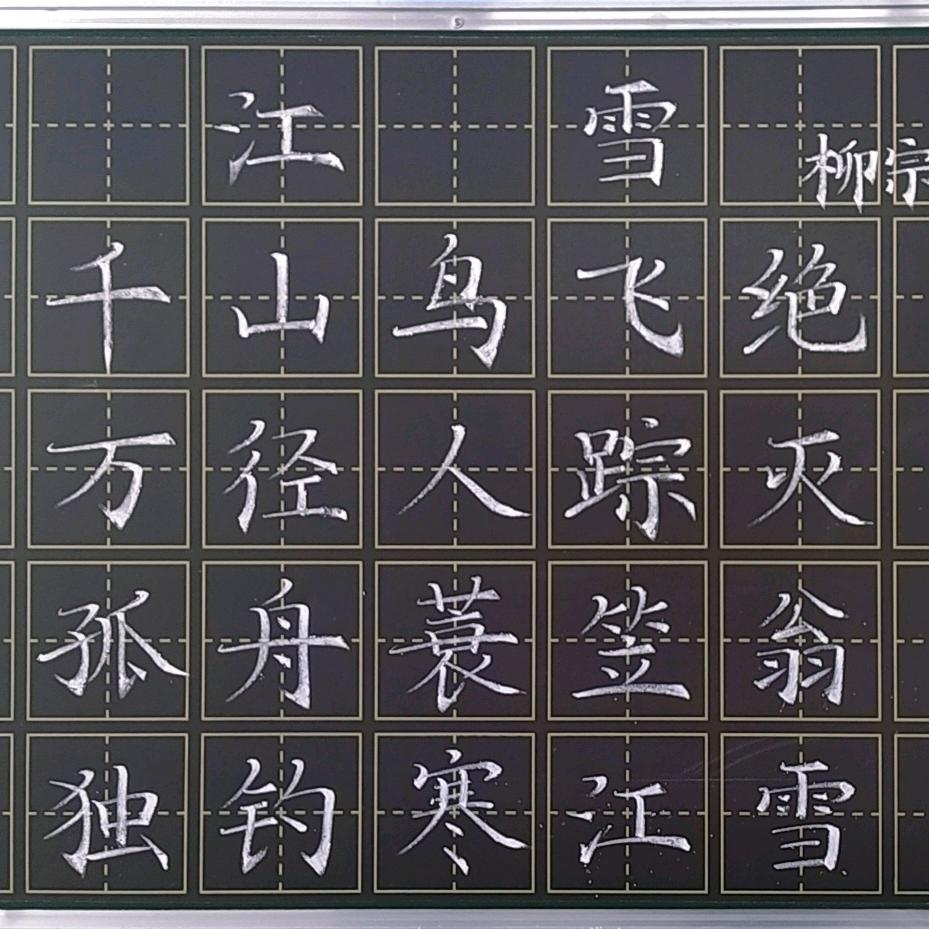 江雪
柳宗
千山鸟飞绝
万径人踪灭
孤舟蓑笠翁
独钓寒江雪